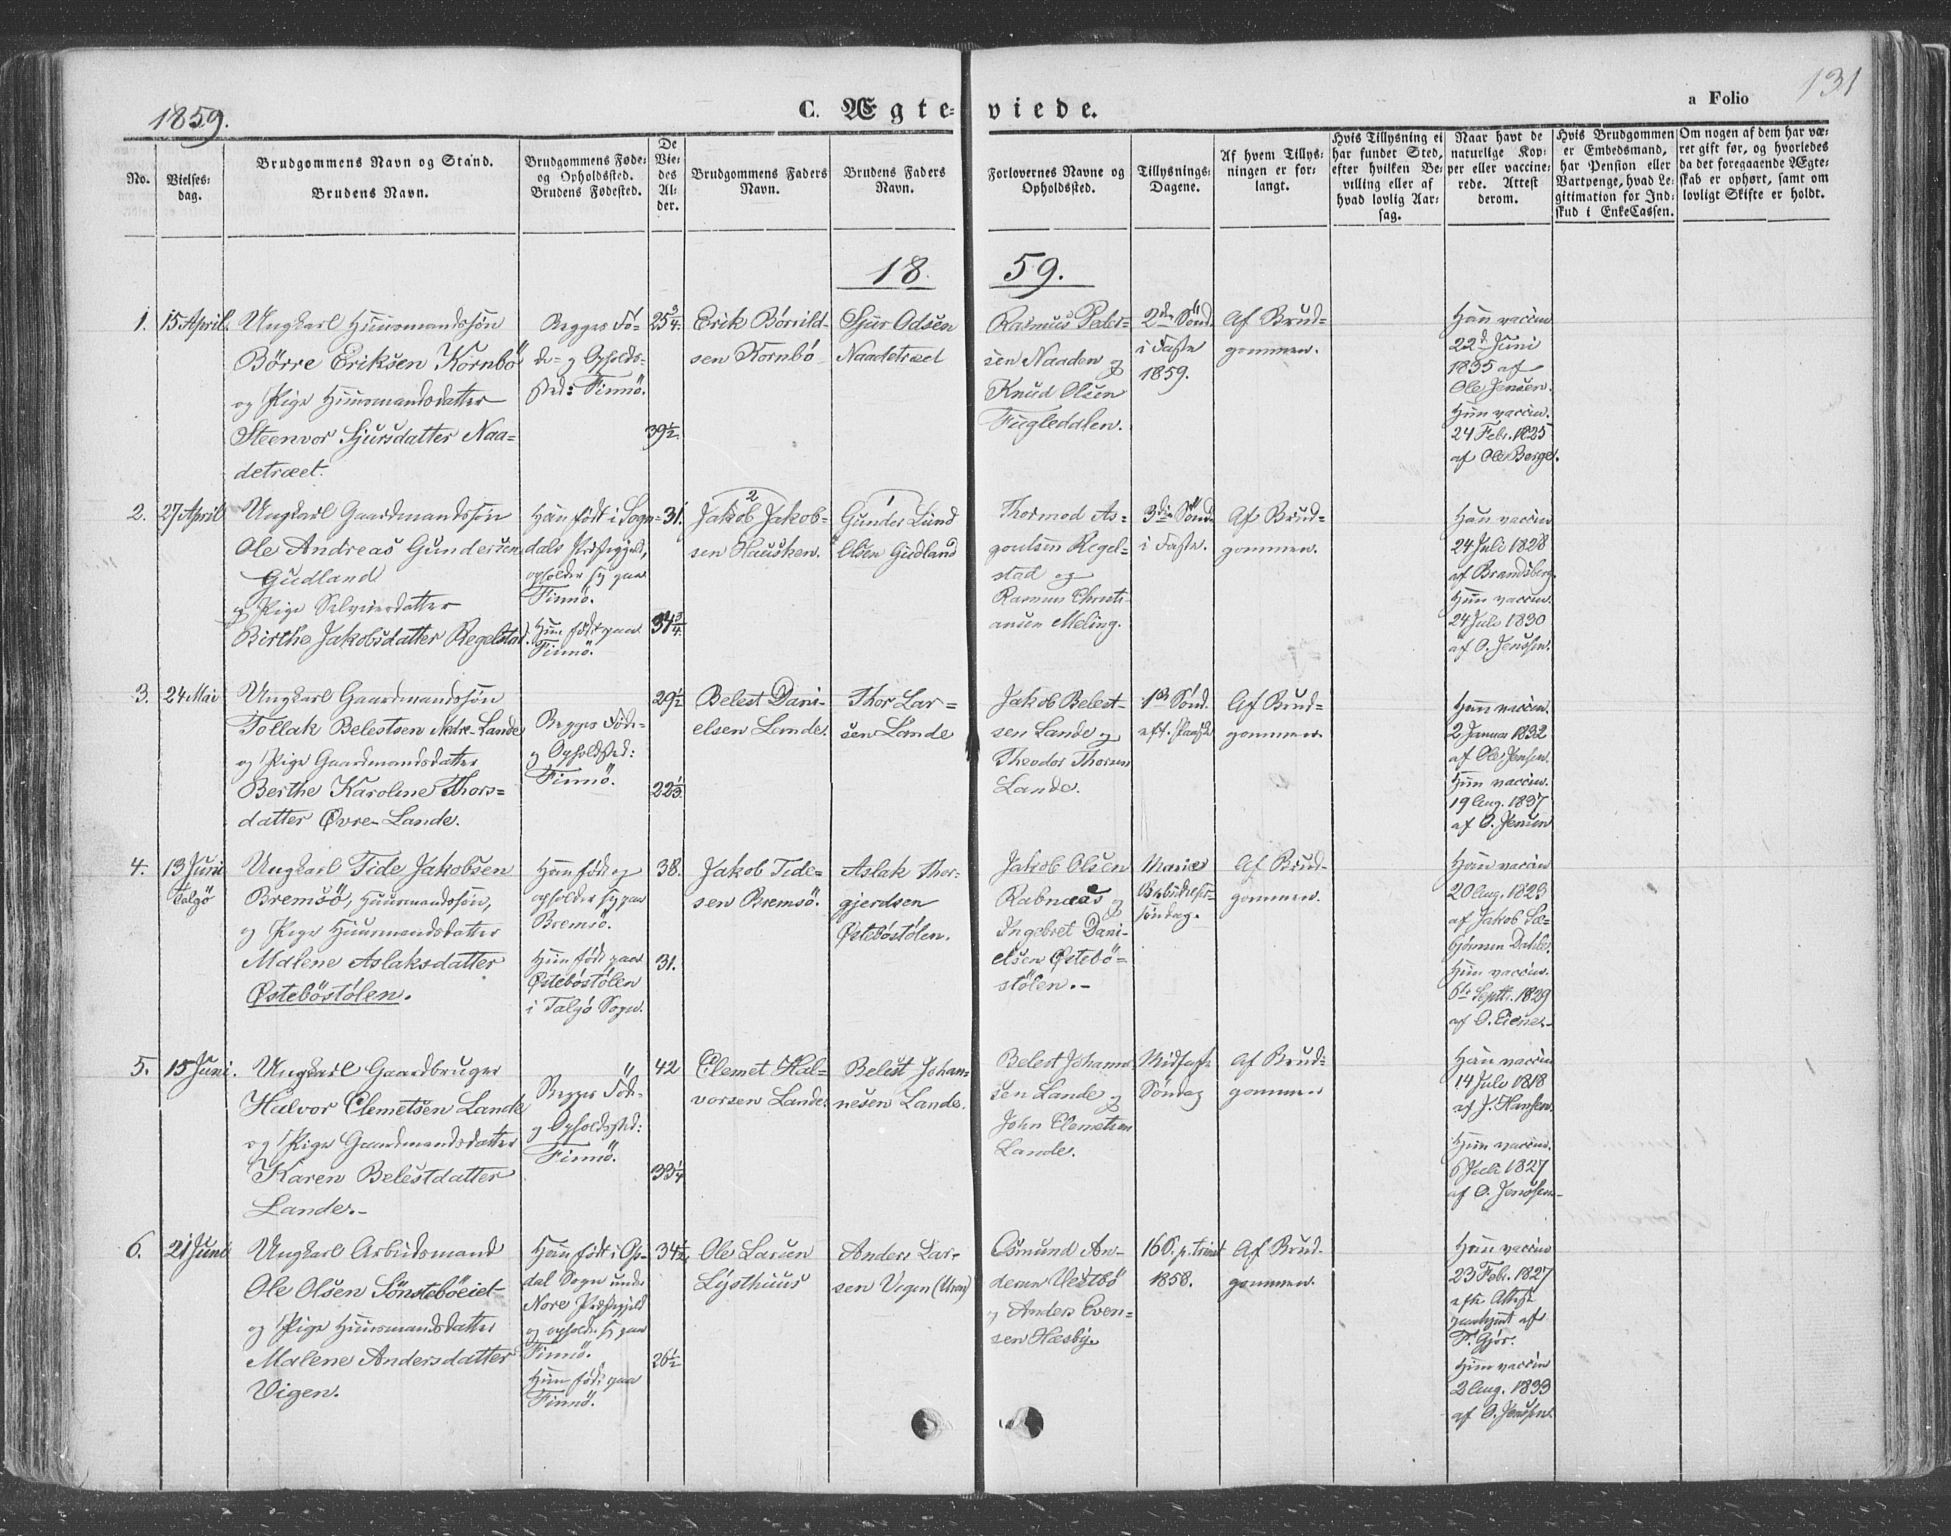 1859.
C. Ægte-
viede.
a Folio
131
No.
Vielses-
dag.
Brudgommens Navn og Stand.
Brudens Navn.
Brudgommens Føde-
og Opholdssted.
Brudens Fødested.
De
Vie-
des
Al-
der.
Brudgommens Faders
Navn.
Brudens Faders
Navn.
Forlovernes Navne og
Opholdssted.
Tillysnings-
Dagene.
Af hvem Tillys-
ningen er for-
langt.
Hvis Tillysning ei
har fundet Sted,
efter hvilken Be-
villing eller af
hvad lovlig Aar-
sag.
Naar havt de
naturlige Kop-
per eller vaccine-
rede. Attest
derom.
Hvis Brudgommen
er Embedsmand,
har Pension eller
Vartpenge, hvad Le-
gitimation for Ind-
skud i EnkeCassen.
Om nogen af dem har væ-
ret gift før, og hvorledes
da det foregaaende Ægte-
skab er ophørt, samt om
lovligt Skifte er holdt.
18
59.
1.
15 April.
Ungkarl Huusmandssøn
Børre Eriksen Kornbö
og Pige Huusmandsdatter
Steenvor Sjursdatter Naa-
detræet.
Begges Fö-
de- og Opholds-
sted: Finnö.
25 3/4.
39 1/2.
Erik Börrild-
sen Kornbö
Sjur Odsen
Naadetræet
Rasmus Peder-
sen Naaden og
Knud Olsen
Fugleddalen.
2den Sönd.
i Faste
1859.
Af Brud-
gommen.
Han vaccin.
22d Juni
1835 af
Ole Jensen.
Hun vaccin.
24 Febr. 1825
af Ole Berge.
2.
27 April
Ungkarl Gaardmandssøn
Ole Andreas Gundersen
Gudland
og Pige Selveierdatter
Birthe Jakobsdatter Regelstad.
Han født i Sogn-
dals Præstegjeld,
opholder sig paa
Finnö.
Hun født paa
Finnö.
31.
34 3/4
2
Jakob Jakob-
sen Hausken.
1
Gunder Lund
Olsen Gudland
Thormod As-
goutsen Regel-
stad og
Rasmus Christi-
ansen Meling.
3die Sönd.
i Faste.
Af Brud-
gommen.
Han vaccin
24 Juli 1828
af Brandsberg.
Hun vaccin.
24 Juli 1830
af O. Jenssen.
3.
24 Mai
Ungkarl Gaardmandssøn
Tollak Belestsen Nedre-Lande
og Pige Gaardmandsdatter
Berthe Karoline Thors-
datter Øvre-Lande.
Begges Føde-
og Opholdssted:
Finnö.
29 1/2
22 1/3.
Belest Dani-
elsen Lande.
Thor Lar-
sen Lande
Jakob Belest-
sen Lande og
Theodor Thorsen
Lande.
1ste Sönd.
eft. Paaske
Af Brud-
gommen.
Han vaccin.
2 Januar 1832
af Ole Jensen.
Hun vaccin.
19 Aug. 1837
af O. Jensen
4.
13 Juni
Talgö
Ungkarl Tide Jakobsen
Bremsö, Huusmandssøn,
og Pige Huusmandsdatter
Malene Aslaksdatter
Østebøstølen.
Han født og
opholder sig paa
Bremsö.
Hun født paa
Østebøstølen
i Talgö Sogn.
38.
31.
Jakob Tide-
sen Bremsö.
Aslak Thor-
gjerdsen
Østebøstølen.
Jakob Olsen
Rabnaas og
Ingebret Dani-
elsen Østebö-
stølen.-
Mariæ
Bebudelses-
söndag.
Af Brud-
gommen.
Han vaccin
20 Aug. 1823
af Jakob
Dahle.
Hun vaccin.
6te Septbr. 1829
af O.
5.
15 Juni.
Ungkarl Gaardbruger
Halvor Clemetsen Lande
og Pige Gaardmandsdatter
Karen Belestdatter
Lande.-
Begges Føde-
og Opholdssted:
Finnö.
42
33 1/4
Clemet Hal-
vorsen Lande.
Belest Johan-
nesen Lande.
Belest Johanne-
sen Lande og
John Clemetsen
Lande.
Midfaste
Söndag
Af Brud-
gommen
Han vaccin
14 Juli 1818
af J. Hansen.
Hun vaccin.
6 Juli 1827
af O. Jenssen.
6.
21 Juni
Ungkarl Arbeidsmand
Ole Olsen Sönstebøeiet
og Pige Huusmandsdatter
Malene Andersdatter
Vigen.
Han født i Op-
dal Sogn under
Nore Præstegjeld
og opholder sig paa
Finnö.
Hun født paa
Finnö.
34 1/2
26 1/2
Ole Larsen
Lysthuus
Anders Lar-
sen Vigen
Osmund An-
dersen Vestbö
og Anders Even-
sen Hæsby.
16 S. p. trinit
1858.
Af Brud-
gommen.
Han vaccin
23 Febr. 1827
efter Attest
af
Gjør.
Hun vaccin
2 Aug. 1833
af O. Jenssen.